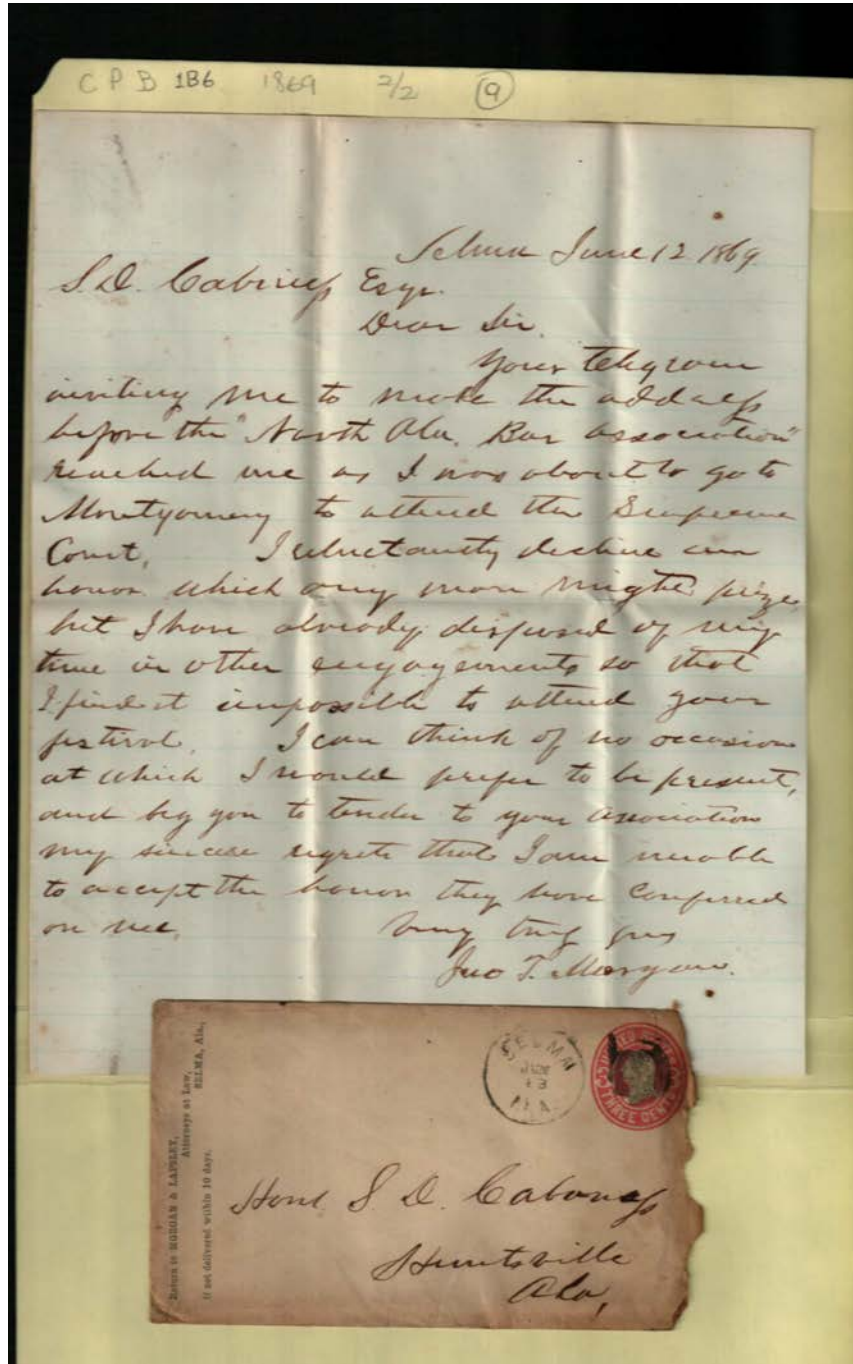 C P B 1B6 1869 2/2 9
Selma June 12 1869
S. D. Cabiness Esqr.
Dear Sir.
Your telegram
inviting me to make the address
before the "North Ala. Bar Association"
reached me as I was about to go to
Montgomery to attend the Supreme
Court. I reluctantly decline an
honor which any man might prize,
but I have already disposed of my
time in other engagements so that
I find it impossible to attend your
festival. I can think of no occasion
at which I would prefer to be present,
and beg you to tender to your association
my sincere regrets that I am unable
to accept the honor they have conferred
on me. Very truly yrs
Jno T. Morgan.
SELMA
JUN
13
ALA.
THREE CENTS
Return to MORGAN & LAPSLEY,
Attorneys at Law,
SELMA, Ala.,
If not delivered within 10 days.
Honl. S. D. Cabaness
Huntsville
Ala,